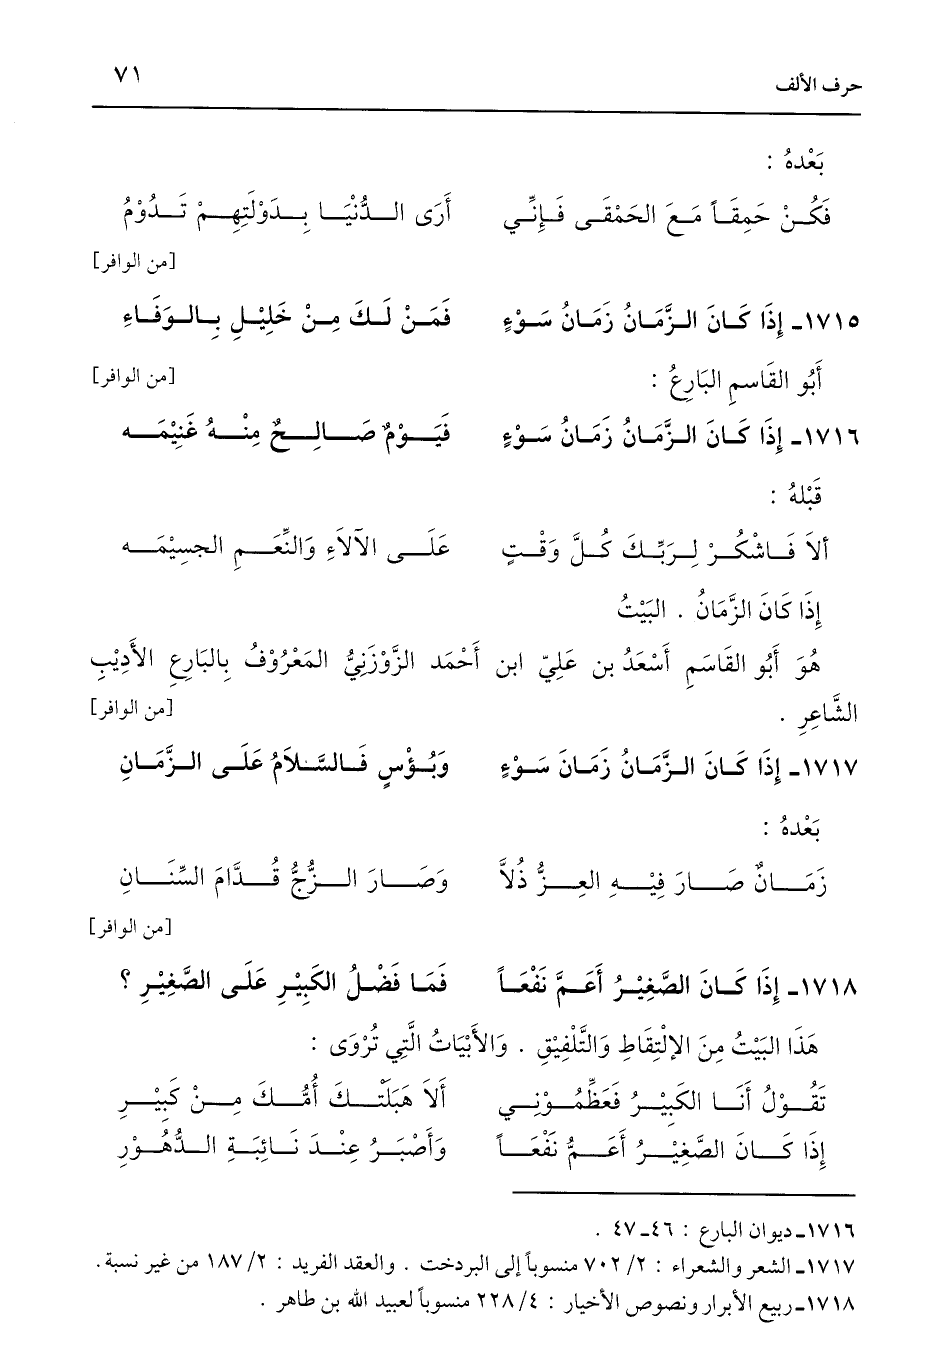 حرف الألف ٧١
بَعْدهُ :
فَكُنْ حَمِقَاً مَعَ الحَمْقَى فَإِنِّي أَرَى الدُّنْيَا بِدَوْلَتِهِمْ تَدُوْمُ
[من الوافر]
١٧١٥ـ إِذَا كَانَ الزَّمَانُ زَمَانُ سَوْءٍ فَمَنْ لَكَ مِنْ خَلِيْلٍ بِالوَفَاءِ
أَبُو القَاسمِ البَارِعُ : [من الوافر]
١٧١٦ـ إِذَا كَانَ الزَّمَانُ زَمَانُ سَوْءٍ فَيَوْمٌ صَالِحٌ مِنْهُ غَنِيْمَه
قَبْلهُ :
ألاَ فَاشْكُرْ لِرَبِّكَ كُلَّ وَقْتٍ عَلَى الآلاَءِ وَالنِّعَمِ الجسِيْمَه
إِذَا كَانَ الزَّمَانُ . البَيْتُ
هُوَ أَبُو القَاسَمِ أَسْعَدُ بن عَلِيّ ابن أَحْمَد الزَّوْزَنِيُّ المَعْرُوْفُ بِالبَارِعِ الأَدِيْبِ
الشَّاعِرِ . [من الوافر]
١٧١٧ـ إِذَا كَانَ الزَّمَانُ زَمَانَ سَوْءٍ وَبُؤْسٍ فَالسَّلاَمُ عَلَى الزَّمَانِ
بَعْدهُ :
زَمَانٌ صَارَ فِيْهِ العِزُّ ذُلاًّ وَصَارَ الزُّجُّ قُدَّامَ السِّنَانِ
[من الوافر]
١٧١٨ـ إِذَا كَانَ الصَّغِيْرُ أَعَمَّ نَفْعَاً فَمَا فَضْلُ الكَبِيْرِ عَلَى الصَّغِيْرِ ؟
هَذَا البَيْتُ مِنَ الإلْتِقَاطِ وَالتَّلْفِيْقِ . وَالأَبْيَاتُ الَّتِي تُرْوَى :
تَقُوْلُ أَنَا الكَبِيْرُ فَعَظِّمُوْنِي ألاَ هَبَلَتْكَ أُمُّكَ مِنْ كَبِيْرِ
إِذَا كَانَ الصَّغِيْرُ أَعَمُّ نَفْعَاً وَأَصْبَرُ عِنْدَ نَائِبَةِ الدُّهُوْرِ
١٧١٦ـ ديوان البارع : ٤٦ـ٤٧ .
١٧١٧ـ الشعر والشعراء : ٧٠٢/٢ منسوباً إلى البردخت . والعقد الفريد : ١٨٧/٢ من غير نسبة .
١٧١٨ـ ربيع الأبرار ونصوص الأخيار : ٢٢٨/٤ منسوباً لعبيد الله بن طاهر .